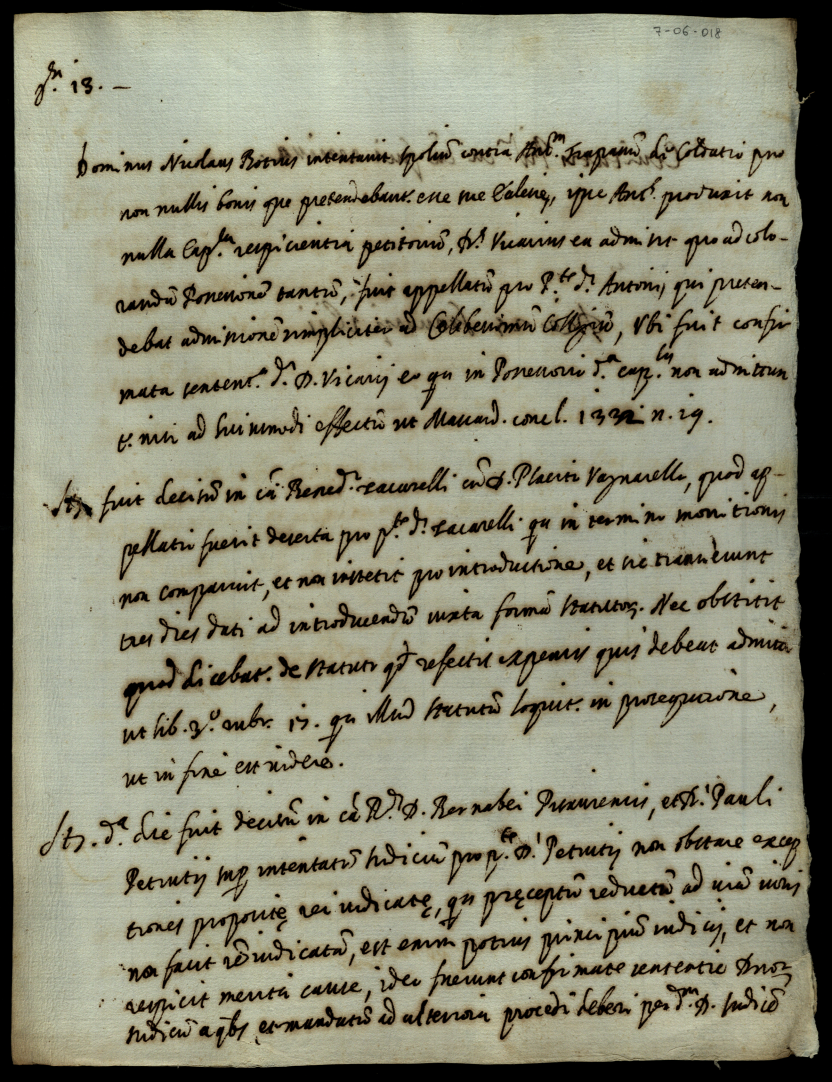 7-06-018
13. –
Dominus Nicolaus Rotius intentavit spoliũ contra Antm Trapanũ de Coldatio pro
non nullis bonis que pretendebant. esse me Calene, ipse Ants. produxit non
nulla Capla respicientia petitoriũ, Ds Vicarius ea admisit quo ad colo-
randũ Possessionẽ tantũ, fuit appellatũ pro Pte di Antonij qui preten-
debat admissionẽ simpliciter ad Celeberrimũ Collegiũ, Ubi fuit confir
mata sentent.a di D. Vicarij eo qa in Possessorio da capla non admittun
t. nisi ad huiusmodi effectũ ut Mascard. concl. 1332 n. 19.
fuit decisũ in cã Bened.i Zacarelli cũ D. Placito Vagnarello, quod ap-
pellatio fuerit deserta pro pte di Zacarelli qa in termino monitionis
non comparuit, et non institit pro introductione, et sic transierunt
tres dies dati ad introducendũ iuxta formã statutor. Nec obstitit
quod dicebat. de statuto qd refectis expensis quis debeat admitti
ut lib. 3.o rubr. 17. qa illud statutũ loquit. in prosequtione,
ut in fine est videre.
da die fuit decisũ in cã Rdi D. Bernabei Pisaurensis, et Di Pauli
Petrutij sup intentatũ Iudiciũ pro pte Di Petrutij non obstare excep
tiones propositę rei iudicatę, qa pręceptũ reductũ ad viã iuris
non facit rẽ iudicatã, est enim potius principiũ iudicij, et non
respicit merita cause, ideo fuerunt confirmate sententie Dnor
Iudicũ a qbs et mandatũ ad ulteriora procedi deberi per dm D. Iudicẽ